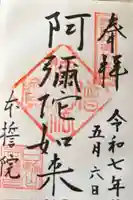 奉拝
令和七年
五月六日
阿彌陀如来
本誓院